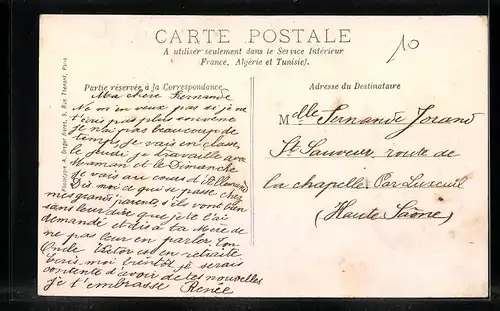 CARTE POSTALE
A utiliser seulement dans le Service Intérieur
France, Algérie et Tunisie).
10
Partie réservée à la Correspondance
Adresse du Destinataire
Ma chère Fernande
Ne m'en veux pas si je ne
t'écris pas plus souvent
je n'ai pas beaucoup de
temps, je vais en classe
le jeudi je travaille avec
Maman et le Dimanche
je vais au cours d'Allemand
Dis moi ce qui se passe chez
mes grands parents, s'ils vont bien
sans leur dire que je te l'ai
demandé et dis à ta Mère de
ne pas leur en parler. Ton
Oncle Victor est en retraite
Écris moi bientôt je serais
contente d'avoir de tes nouvelles
je t'embrasse Renée
Mdlle Fernande Jorand
St Sauveur, route de
la chapelle Par Luxeuil
(Haute Saône)
Phototypie A. Breger frères, 9, Rue Thénard, Paris